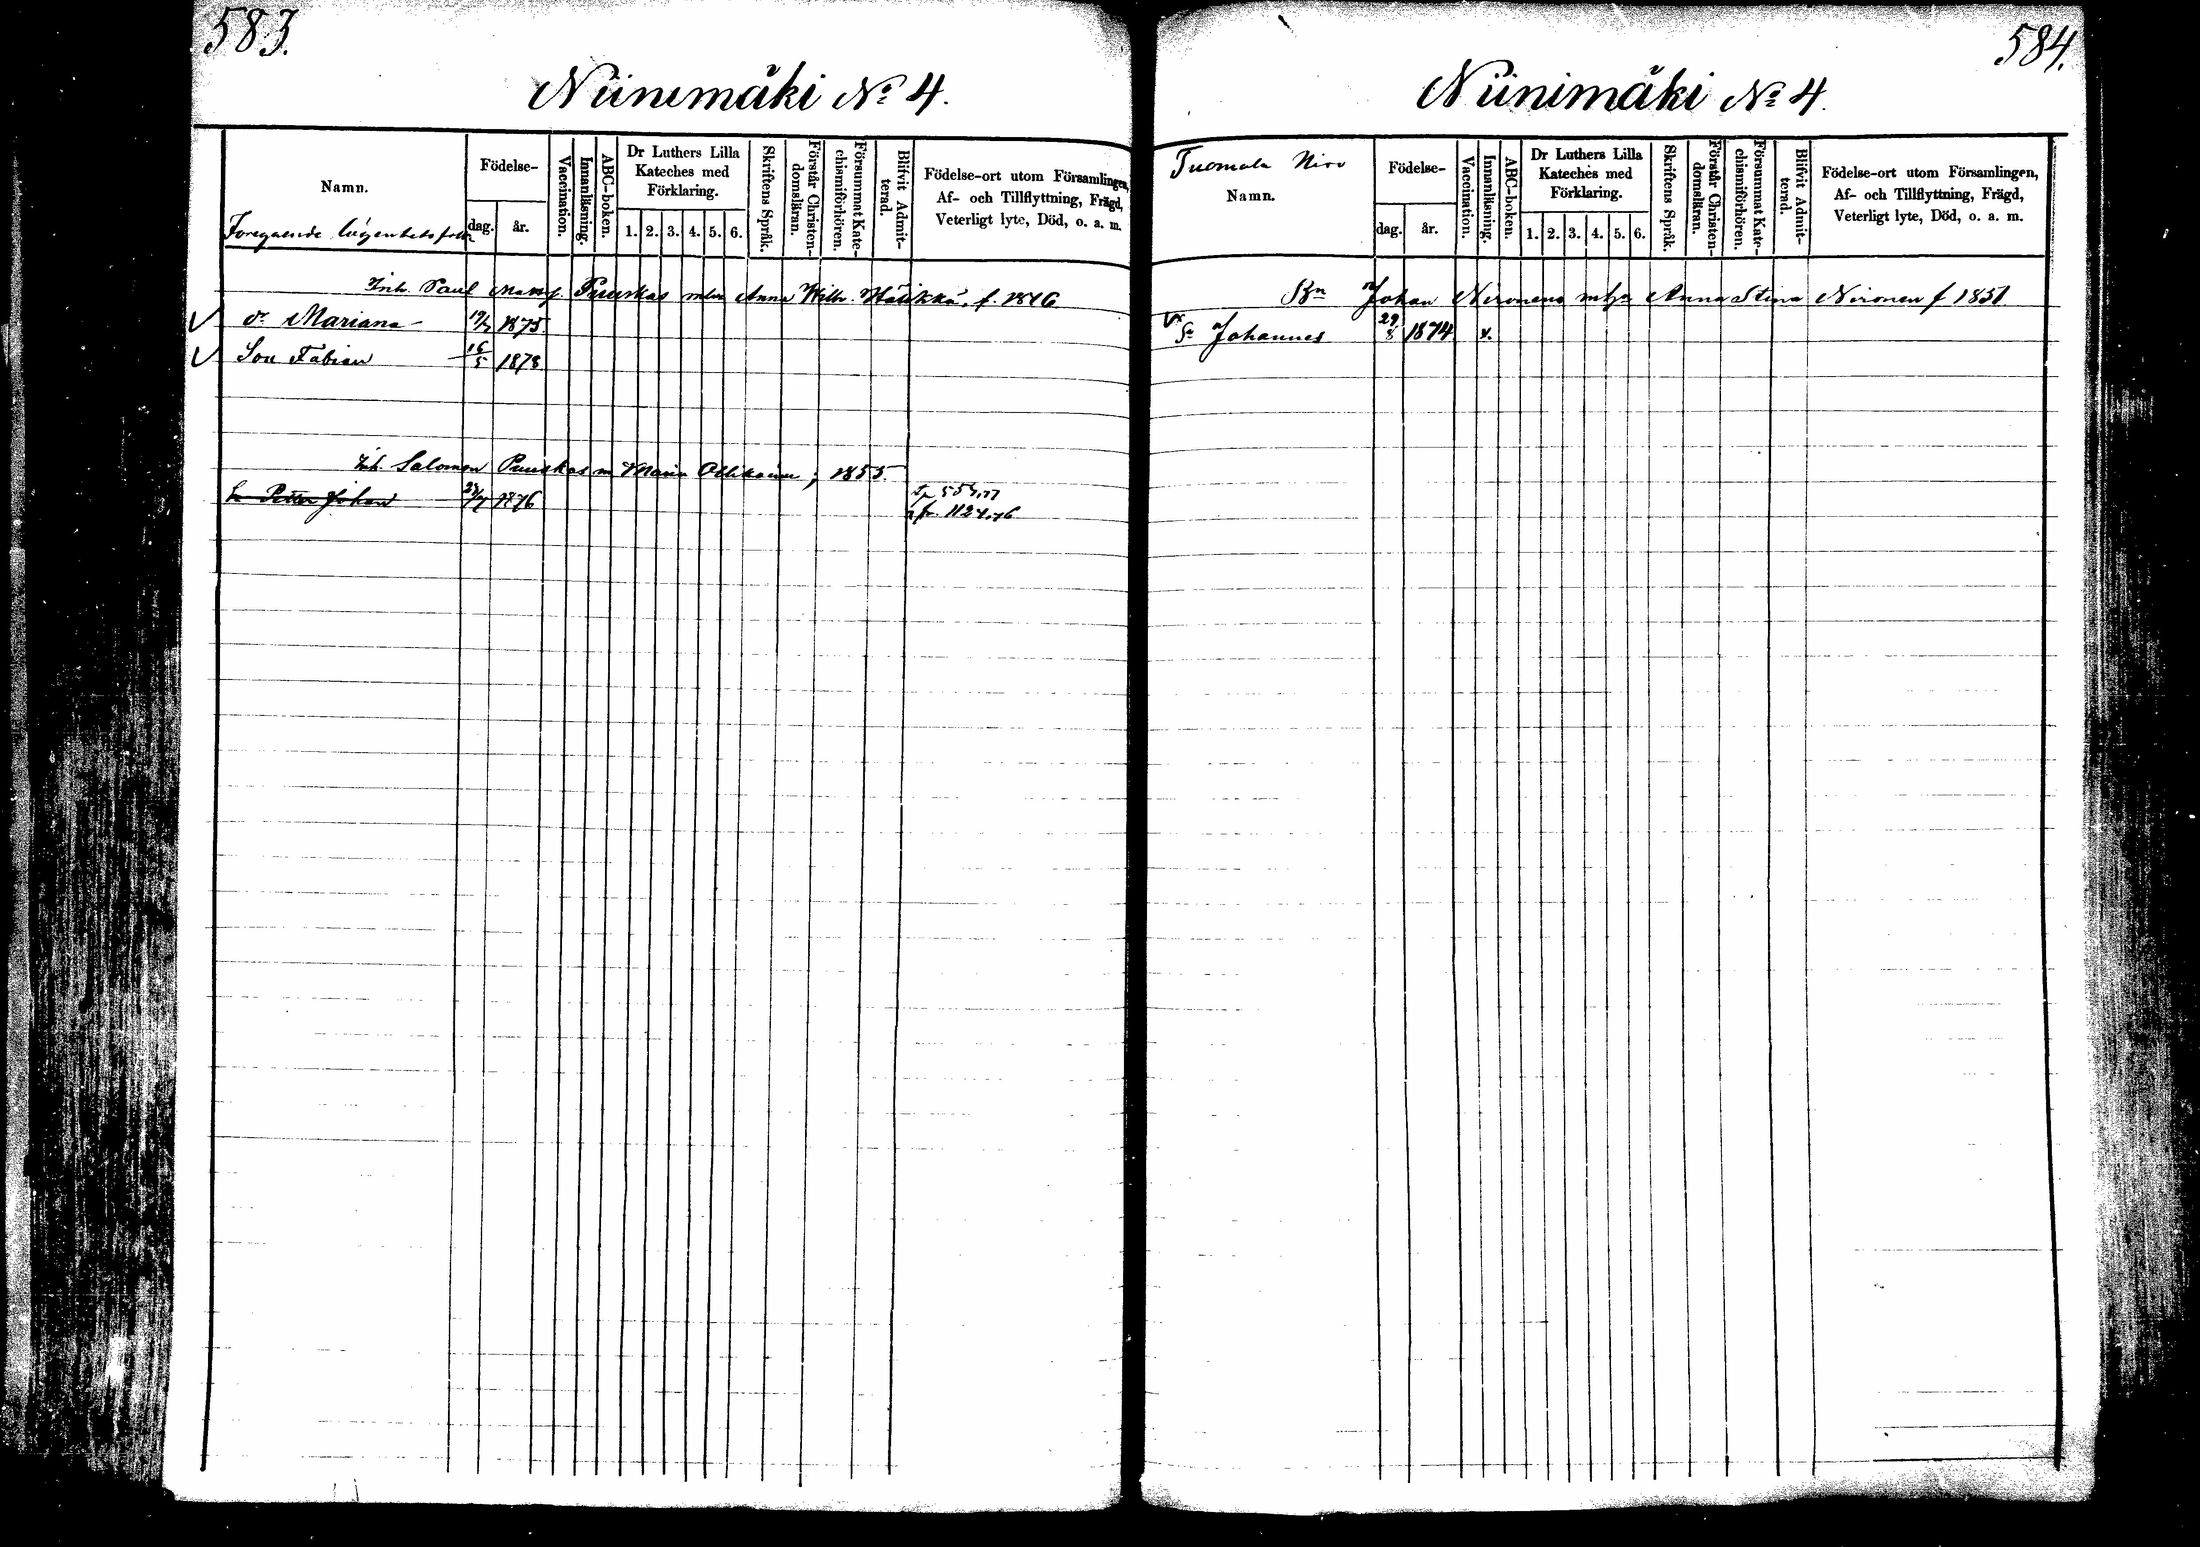 583.
Niinimäki No 4.
Namn.
Födelse-
dag. år.
Vaccination.
Innanläsning.
ABC-boken.
Dr Luthers Lilla
Kateches med
Förklaring.
1. 2. 3. 4. 5. 6.
Skriftens Språk.
Förstår Christen-
domsläran.
Försummat Kate-
chismiförhören.
Blifvit Admit-
terad.
Födelse-ort utom Församlingen,
Af- och Tillflyttning, Frägd,
Veterligt lyte, Död, o. a. m.
Föregående lägenhets folk
Inh. Paul Puuskas Anna Wilh. f. 1846
dr Mariana 1875
Son Fabian 16/5 1878
Inh. Salomon Puuskas m Maria 1855.
Sn Petter Johan 1876
584.
Niinimäki No 4.
Tuomala Niro
Namn.
Födelse-
dag. år.
Vaccination.
Innanläsning.
ABC-boken.
Dr Luthers Lilla
Kateches med
Förklaring.
1. 2. 3. 4. 5. 6.
Skriftens Språk.
Förstår Christen-
domsläran.
Försummat Kate-
chismiförhören.
Blifvit Admit-
terad.
Födelse-ort utom Församlingen,
Af- och Tillflyttning, Frägd,
Veterligt lyte, Död, o. a. m.
Bn Johan Nironens Anna Stina Nironen f 1851
Sn Johannes 29/8 1874 x.